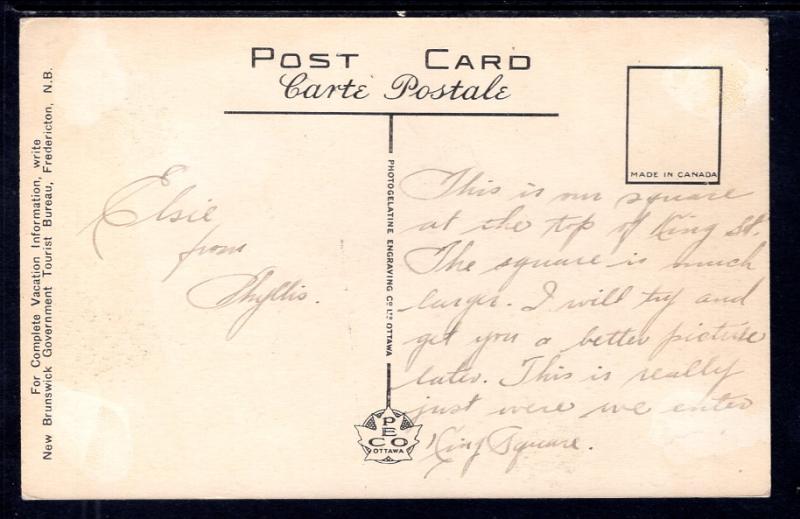 POST CARD
Carte Postale
For Complete Vacation Information, write
New Brunswick Government Tourist Bureau, Fredericton, N.B.
Elsie
from
Phyllis.
PHOTOGELATINE ENGRAVING CO LTD OTTAWA
PECO
OTTAWA
MADE IN CANADA
This is our square
at the top of King St.
The square is much
larger. I will try and
get you a better picture
later. This is really
just were we enter
King Square.